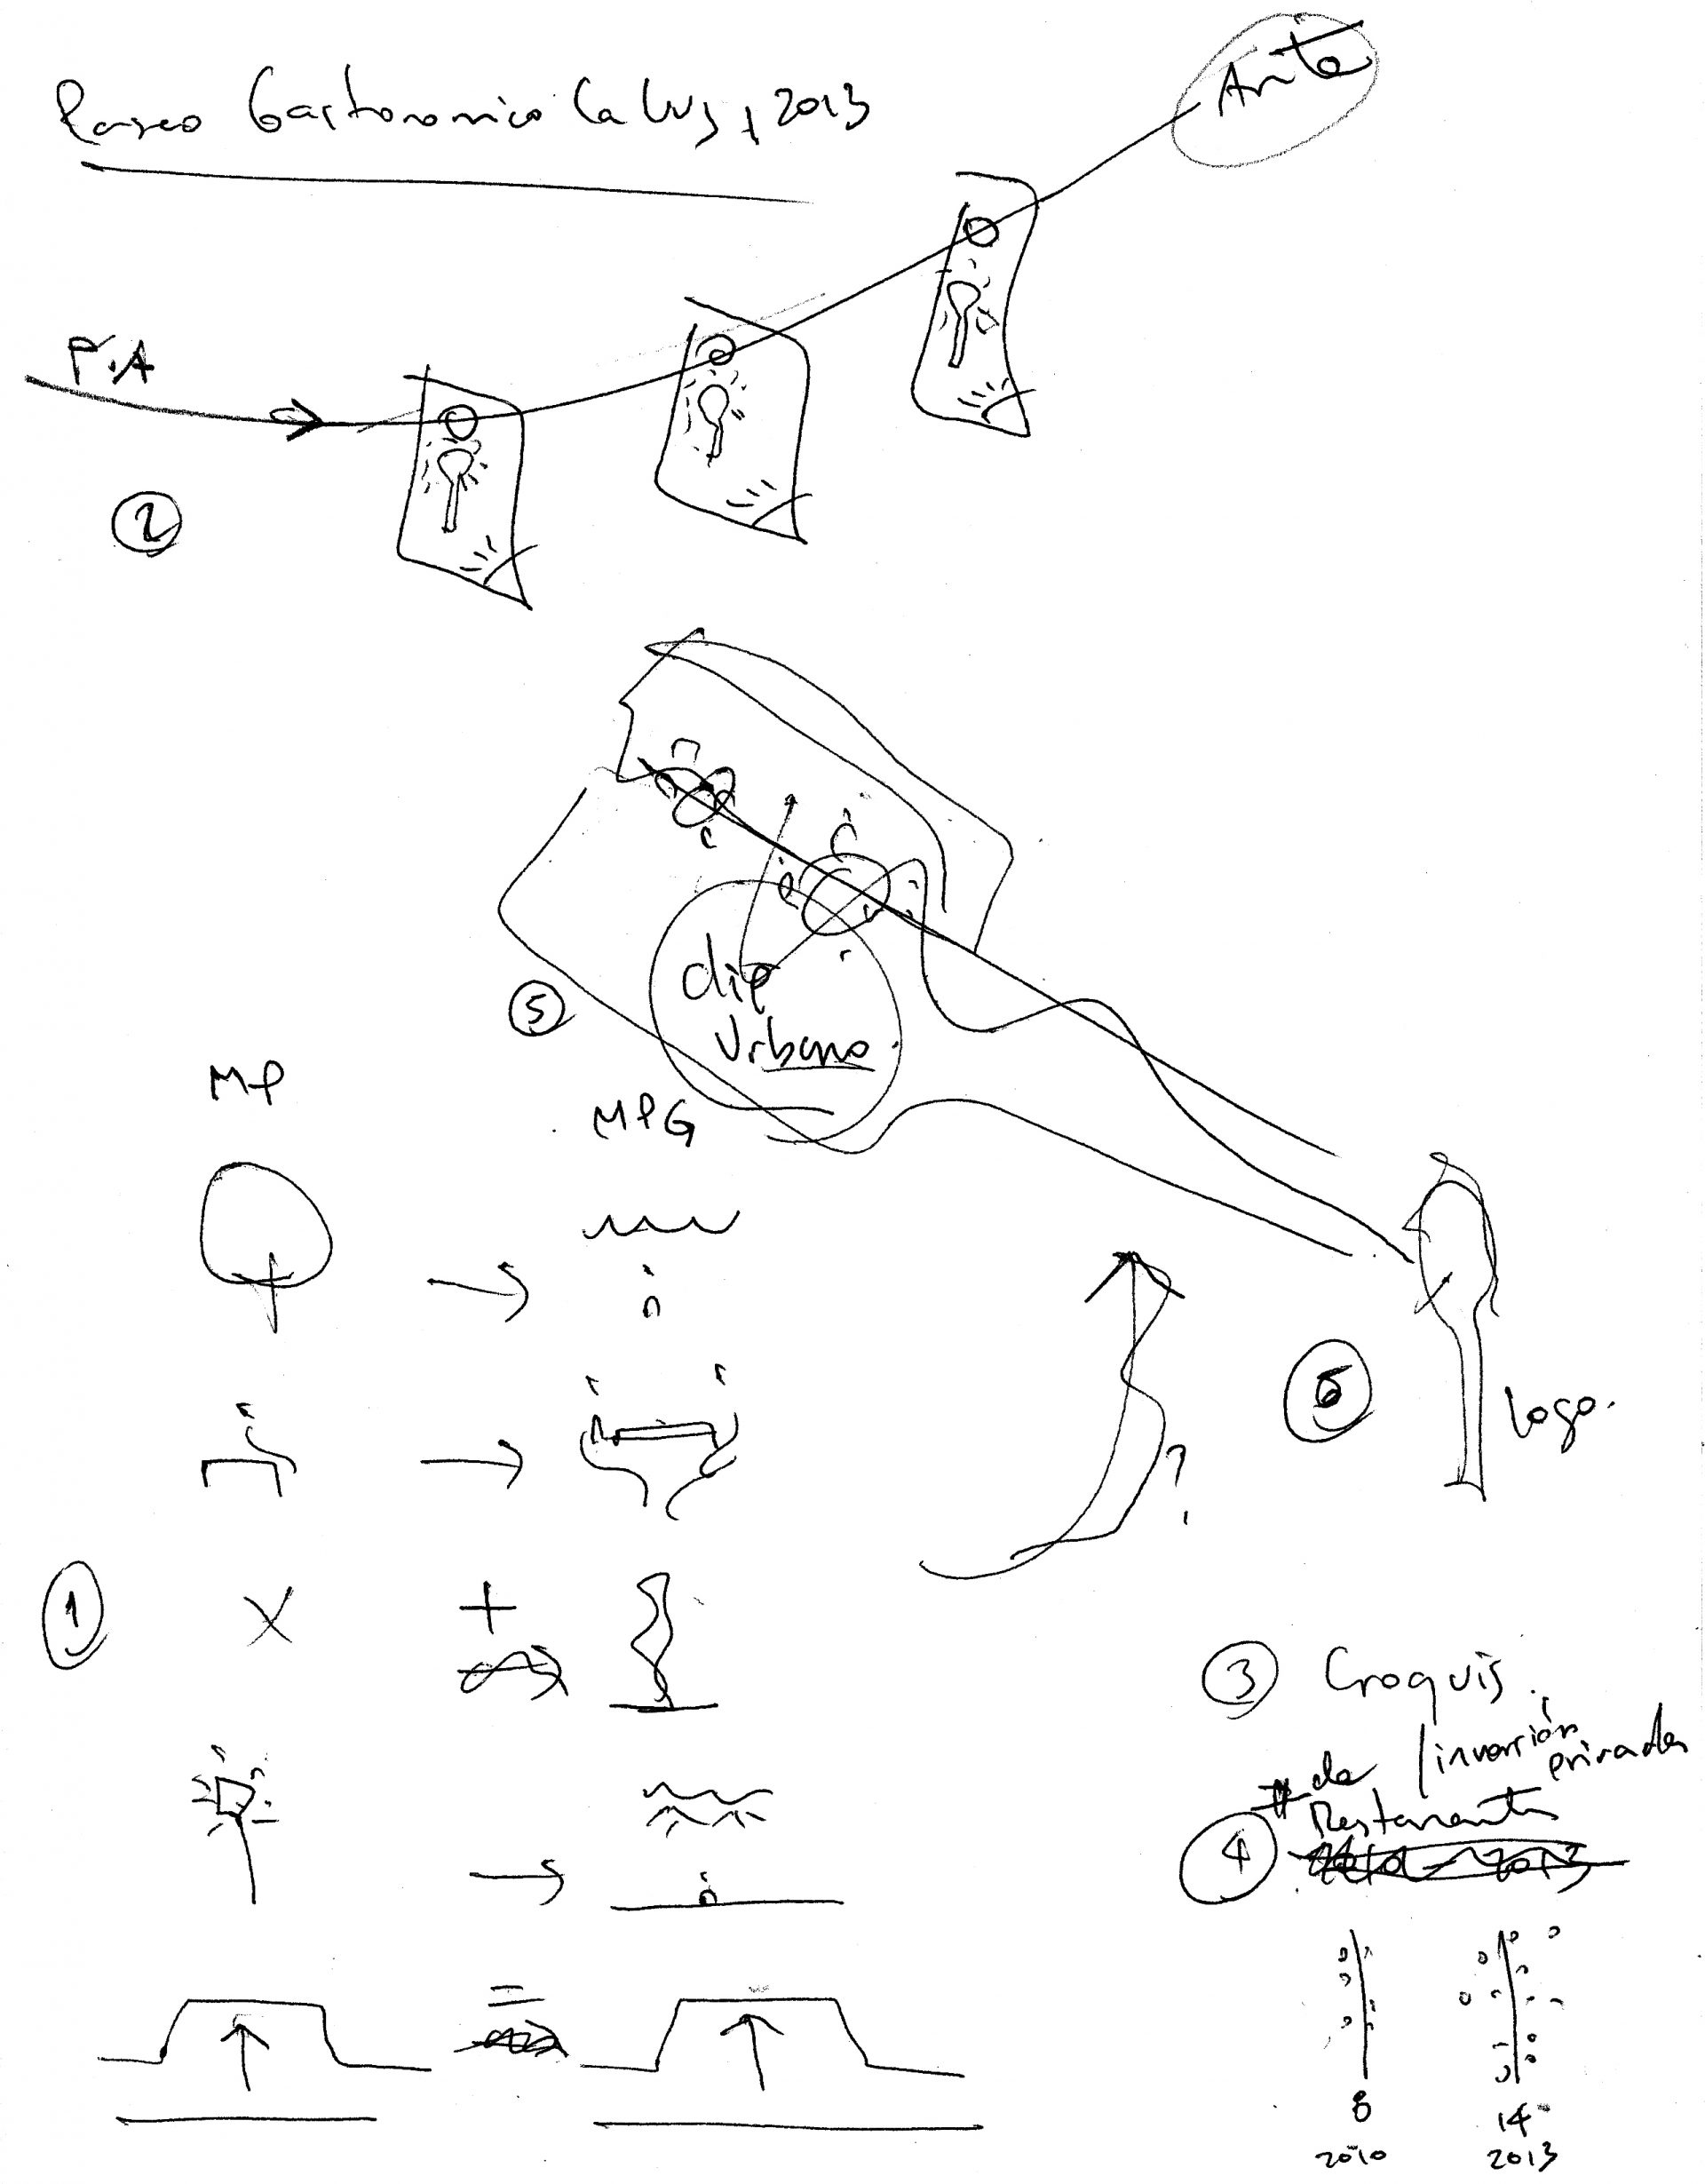 Paseo Gastronomico La Luz, 2013
P.A
2
5
Urbano
MP
MPG
1
?
6
Logo.
3 Croquis.
# de inversión privada
Restaurantes
4
8
2010
14
2013